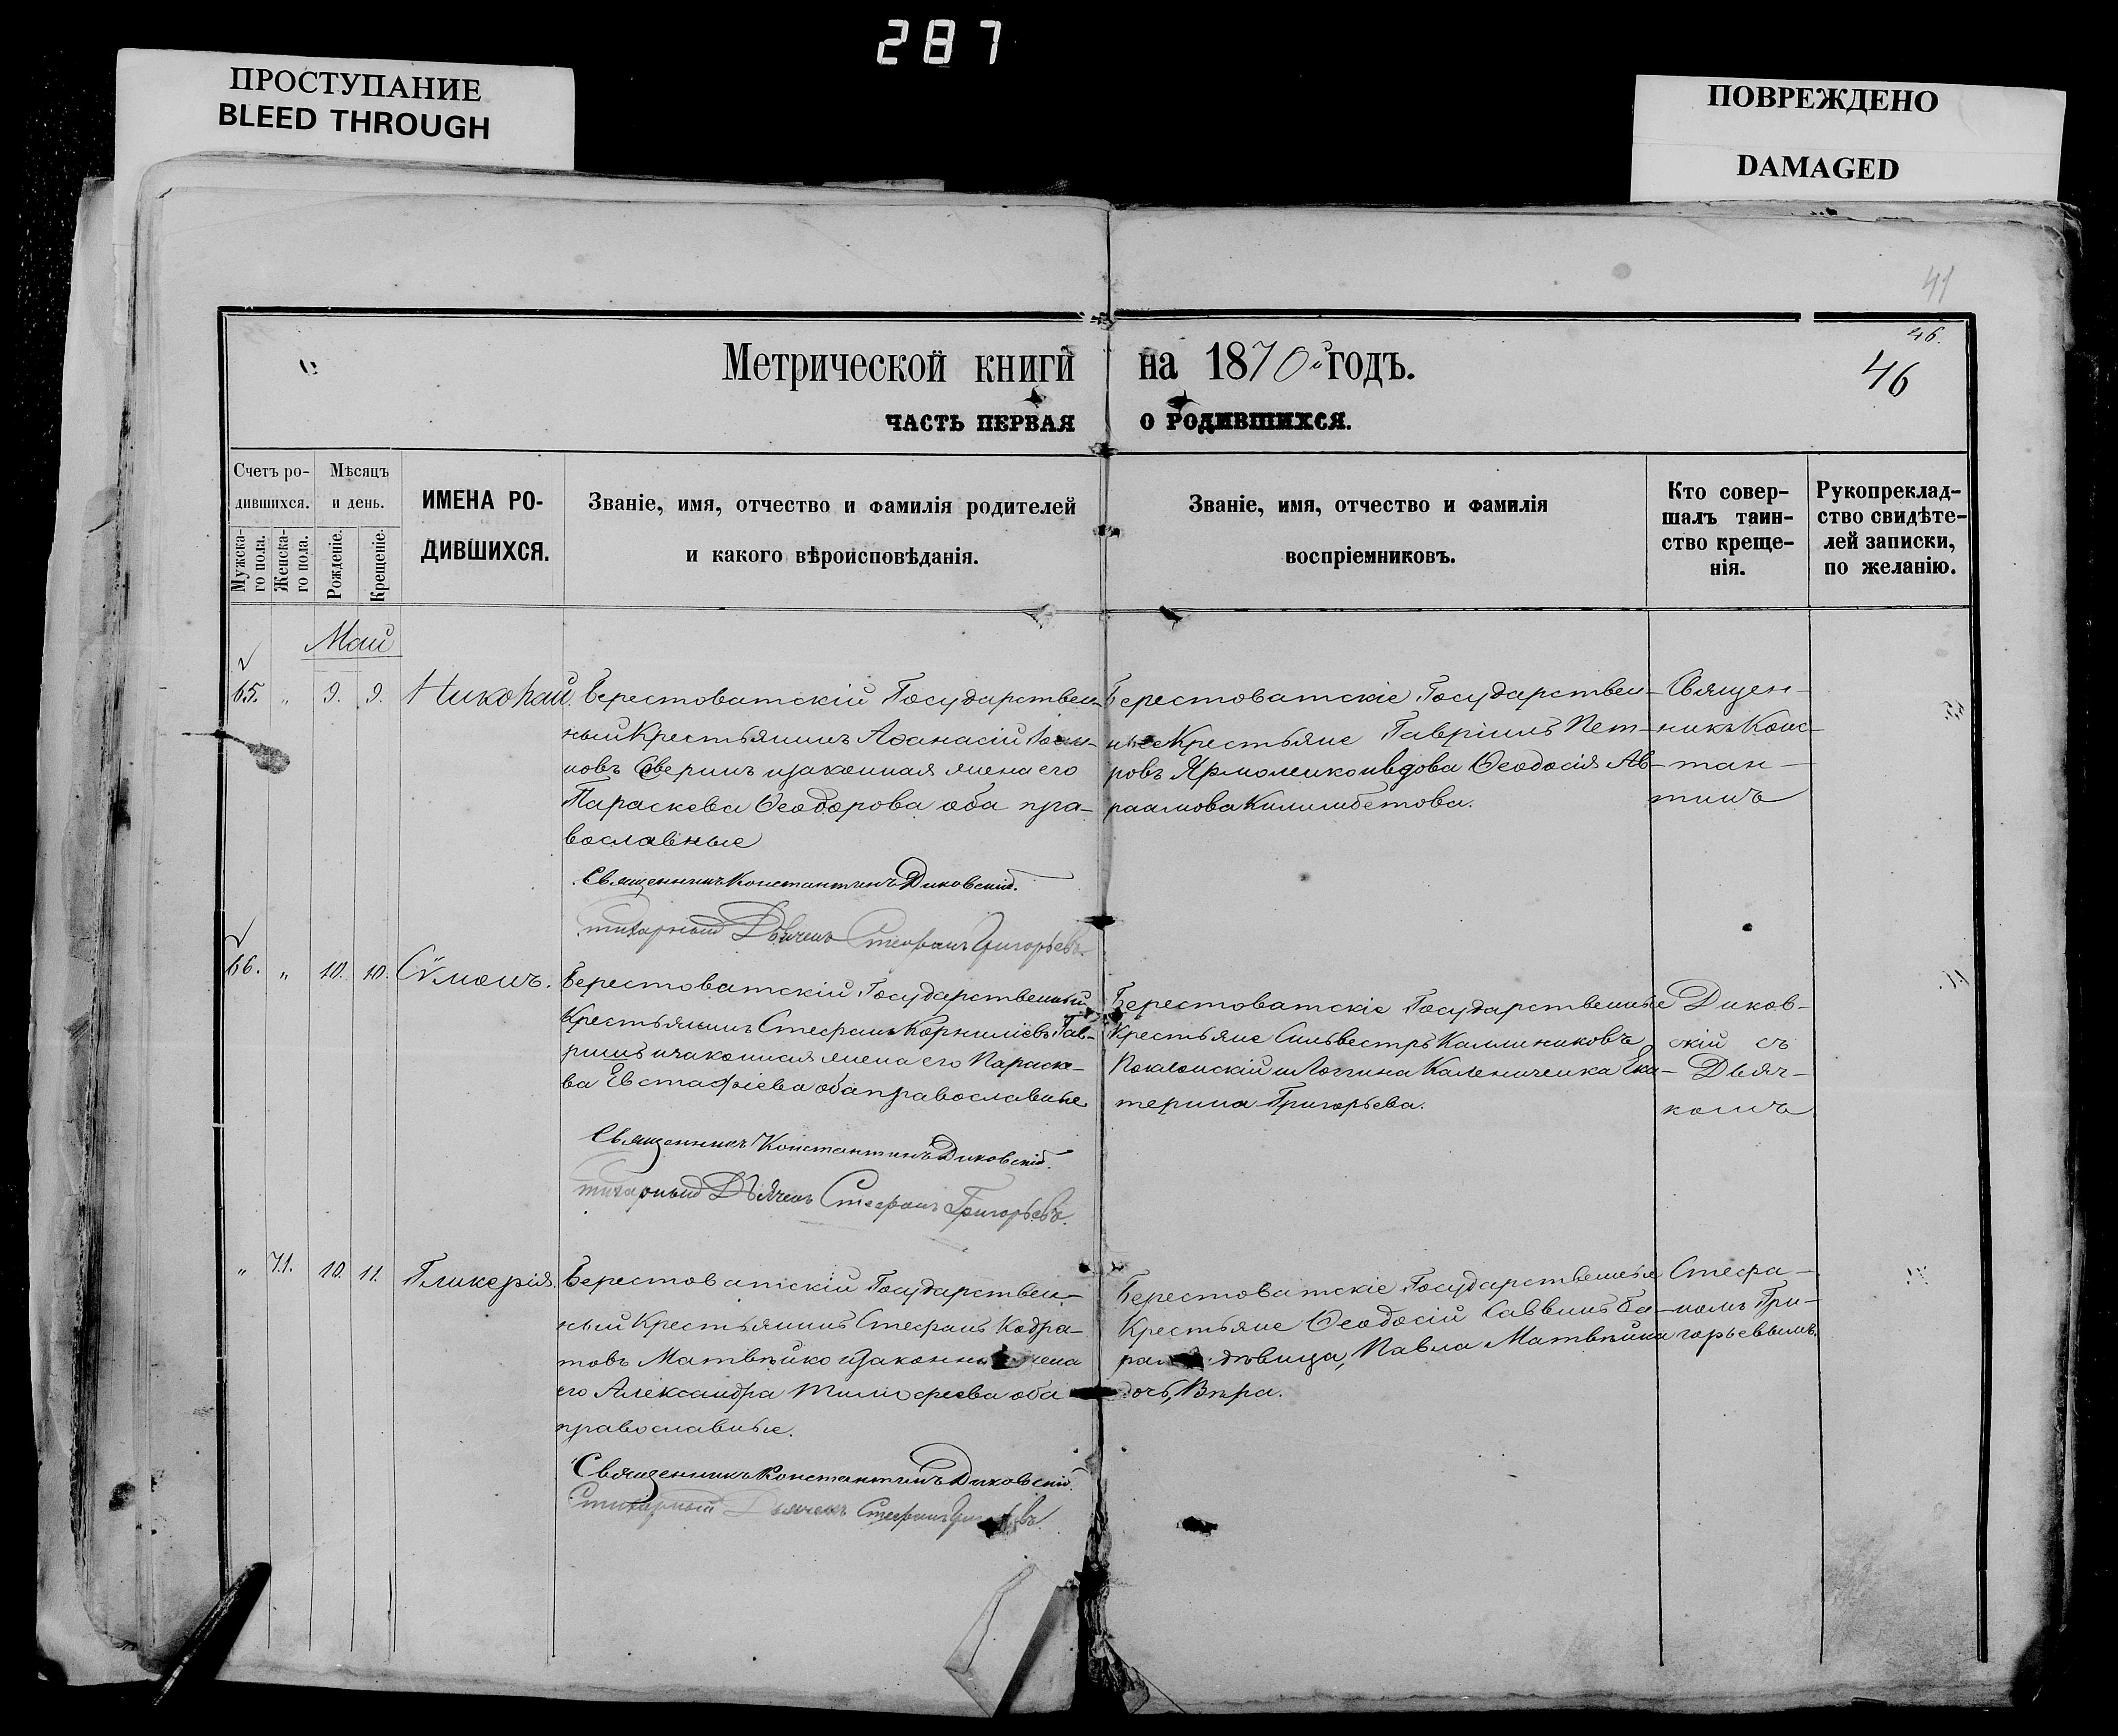 287
ПРОСТУПАНИЕ
BLEED THROUGH
ПОВРЕЖДЕНО
DAMAGED
41
46.
46
Метрической книги на 1870й годъ.
ЧАСТЬ ПЕРВАЯ О РОДИВШИХСЯ.
Счетъ ро-
дившихся.
Мужска-
го пола.
Женска-
го пола.
Мѣсяцъ
и день.
Рожденіе.
Крещеніе.
ИМЕНА РО-
ДИВШИХСЯ.
Званіе, имя, отчество и фамилія родителей
и какого вѣроисповѣданія.
Званіе, имя, отчество и фамилія
воспріемниковъ.
Кто совер-
шалъ таин-
ство креще-
нія.
Рукопреклад-
ство свидѣте-
лей записки,
по желанію.
Май
65. " 9. 9. Николай.
Берестоватскій Государствен-
ный Крестьянинъ Аѳанасій
новъ изаконная жена его
Параскева Ѳеодорова оба пра-
вославные
Священникъ Константинъ Диковскій.
Стихарный Дьячекъ Стефанъ Григорьевъ.
Берестоватскіе Государствен-
ные Крестьяне Гавріилъ Пет-
ровъ Ярмоленко ивдова Ѳеодосія Ав-
раамова
Священ-
никъ Конс-
тан-
тинъ
66. " 10. 10. Сѵмонъ.
Берестоватскій Государственный
Крестьянинъ Стефанъ Корниліевъ Гав-
ришъ изаконная жена его Параске-
ва Евстафіева оба православные
Священникъ Константинъ Диковскій.
Стихарный Дьячекъ Стефанъ Григорьевъ.
Берестоватскіе Государственные
Крестьяне Сильвестръ Каллиниковъ
Логгина Календиченка Ека-
терина Григорьева.
Диков-
скій съ
Дьяч-
комъ
" 71. 10. 11. Гликерія.
Берестоватскій Государствен-
ный Крестьянинъ Стефанъ Кодра-
товъ Матвѣйко изаконная жена
его Александра Тимофеева оба
православные.
Священникъ Константинъ Диковскій.
Стихарный Дьячекъ Стефанъ
Берестоватскіе Государственные
Крестьяне Ѳеодосій Саввинъ
дѣвица, Павла Матвѣйка
дочь, Вѣра.
Стефа-
номъ Гри-
горьевымъ.